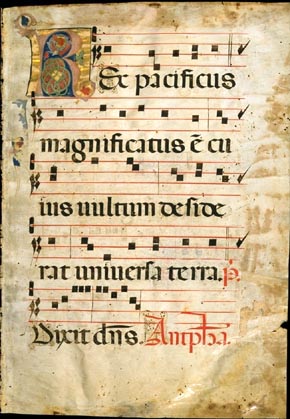 Rex pacificus
magnificatus ē cu
ius uultum deside
rat uniuersa terra. p̄s.
Dixit dn̄s. Antipho̅a